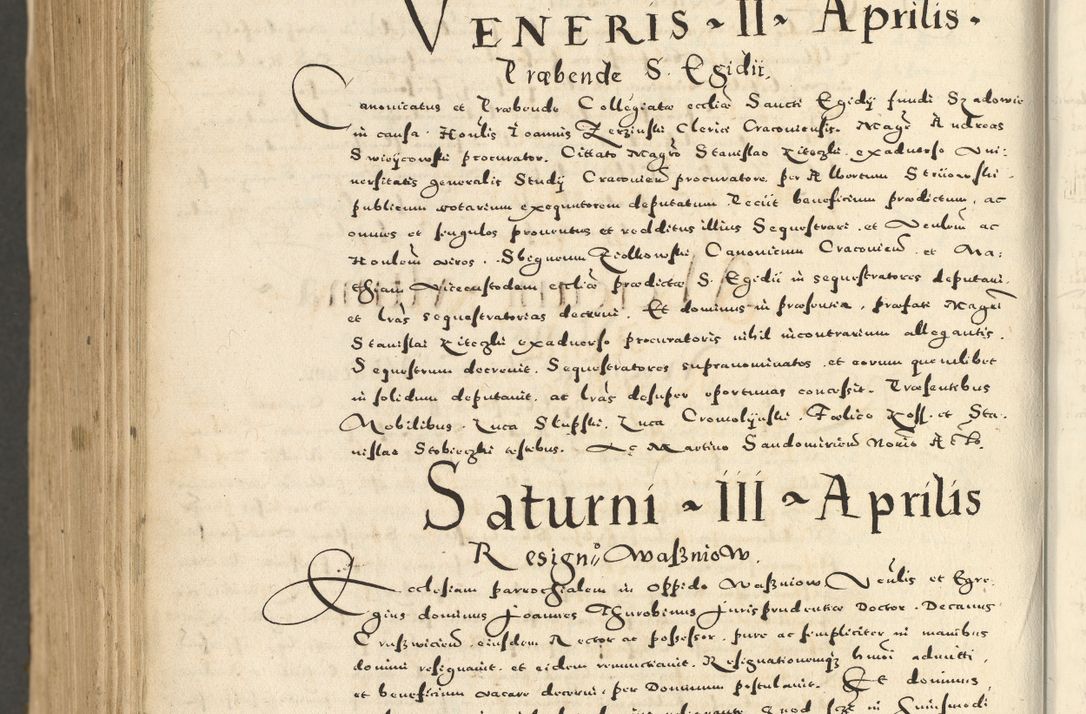 VENERIS ~ II ~ Aprilis.
Præbende S. Egidii.
Canonicatus et Præbende Collegiatæ eccliæ Sancti Egidij fundi Szadowie
in causa Honlis Ioannis Zerzinski Clerici Cracoviensis. Magr Andreas
Swieijcowski procurator. Cittato Magro Stanislao Ziteczki exadverso Vni:
uersitatis generalis Studij Cracovien procuratore per Albertum Striiowski
publicum notarium exequutorem deputatum Petiit beneficium prædictum, ac
omnes et singulos prouentus et redditus illius Sequestrari, et Venlem ac
Honlem viros. Sbigneum Ziolkowski Canonicum Cracovien et Ma:
thiam Vicecustodem eccliæ prædictæ S. Egidii in sequestratores deputari.
et lras sequestratorias decerni. Et dominus in præsentia, præfati Magri
Stanislai Ziteczki exadverso procuratoris nihil incontrarium allegantis.
Sequestrum decrevit. Sequestratores supranominatos et eorum quemlibet
in solidum deputavit ac lras desuper oportunas concessit. Præsentibus
Nobilibus. Luca Slupski, Luca Cromolijnski. Foelice Ross. et Sta:
nislao Stobieczki testibus. Ac Martino Sandomirien Norio
Saturni ~ III ~ Aprilis
Resign: Waßniow.
Ecclesiam parrochialem in Oppido Waßniow Venlis et Egre:
gius dominus Joannes Thurobinus Jurisprudentiæ Doctor. Decanus
Crußwicien eiusdem Rector ac possessor, pure ac simpliciter in manibus
domini resignauit, et eidem renunctiauit. Resignationemqz hmoi admitti,
et beneficium vacare decerni, per Dominum postulauit. Et dominus